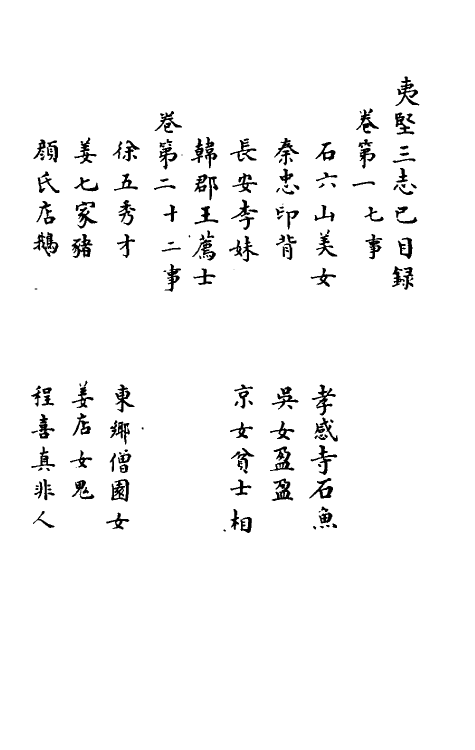 夷堅三志己目錄
卷第一 七事
石六山美女 孝感寺石魚
秦忠印背 吳女盈盈
長安李妹 京女貧士相
韓郡王薦士
卷第二 十二事
徐五秀才 東鄉僧園女
姜七家豬 姜店女鬼
顏氏店鵝 程喜真非人